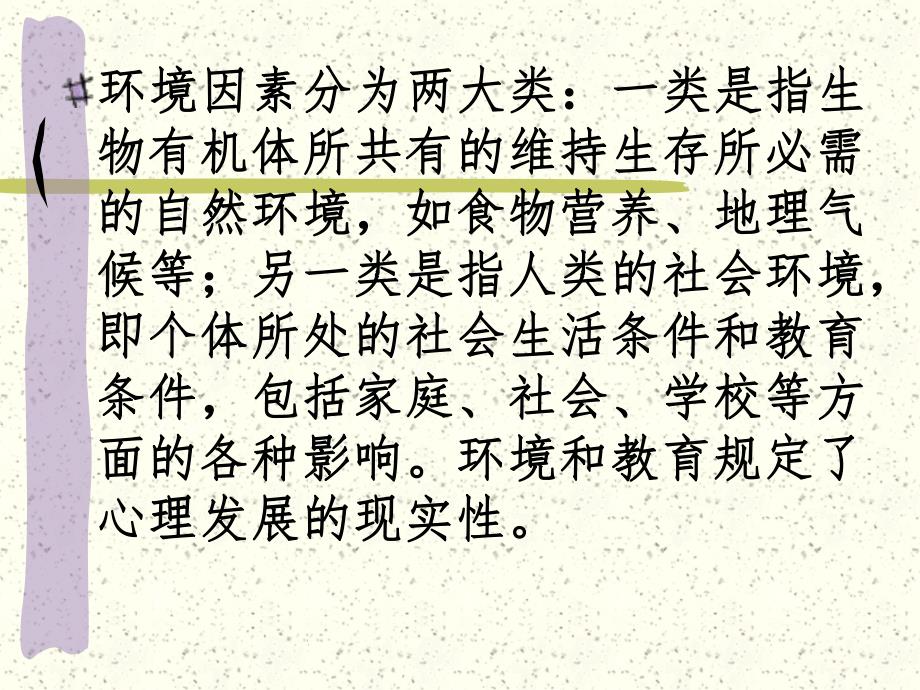 环境因素分为两大类：一类是指生
物有机体所共有的维持生存所必需
的自然环境，如食物营养、地理气
候等；另一类是指人类的社会环境，
即个体所处的社会生活条件和教育
条件，包括家庭、社会、学校等方
面的各种影响。环境和教育规定了
心理发展的现实性。